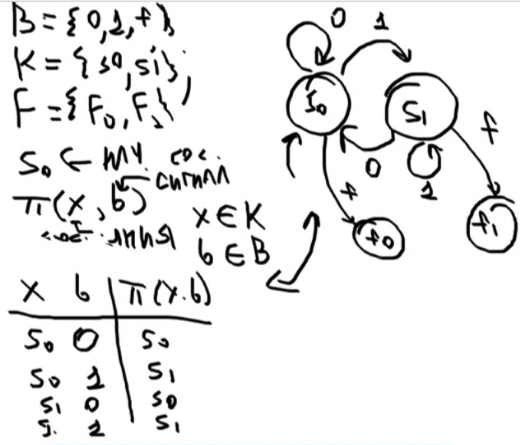 B = {0,1,f},
K = {s0,s1},
F = {F0,F1}
S0 ← нач. сос.
сигнал
π(x,b)
x ∈ K
b ∈ B
x b π(x.b)
S0 0 S0
S0 1 S1
S1 0 S0
S. 1 S1
0 1
S0 S1
f
0
1
f
f0
f1